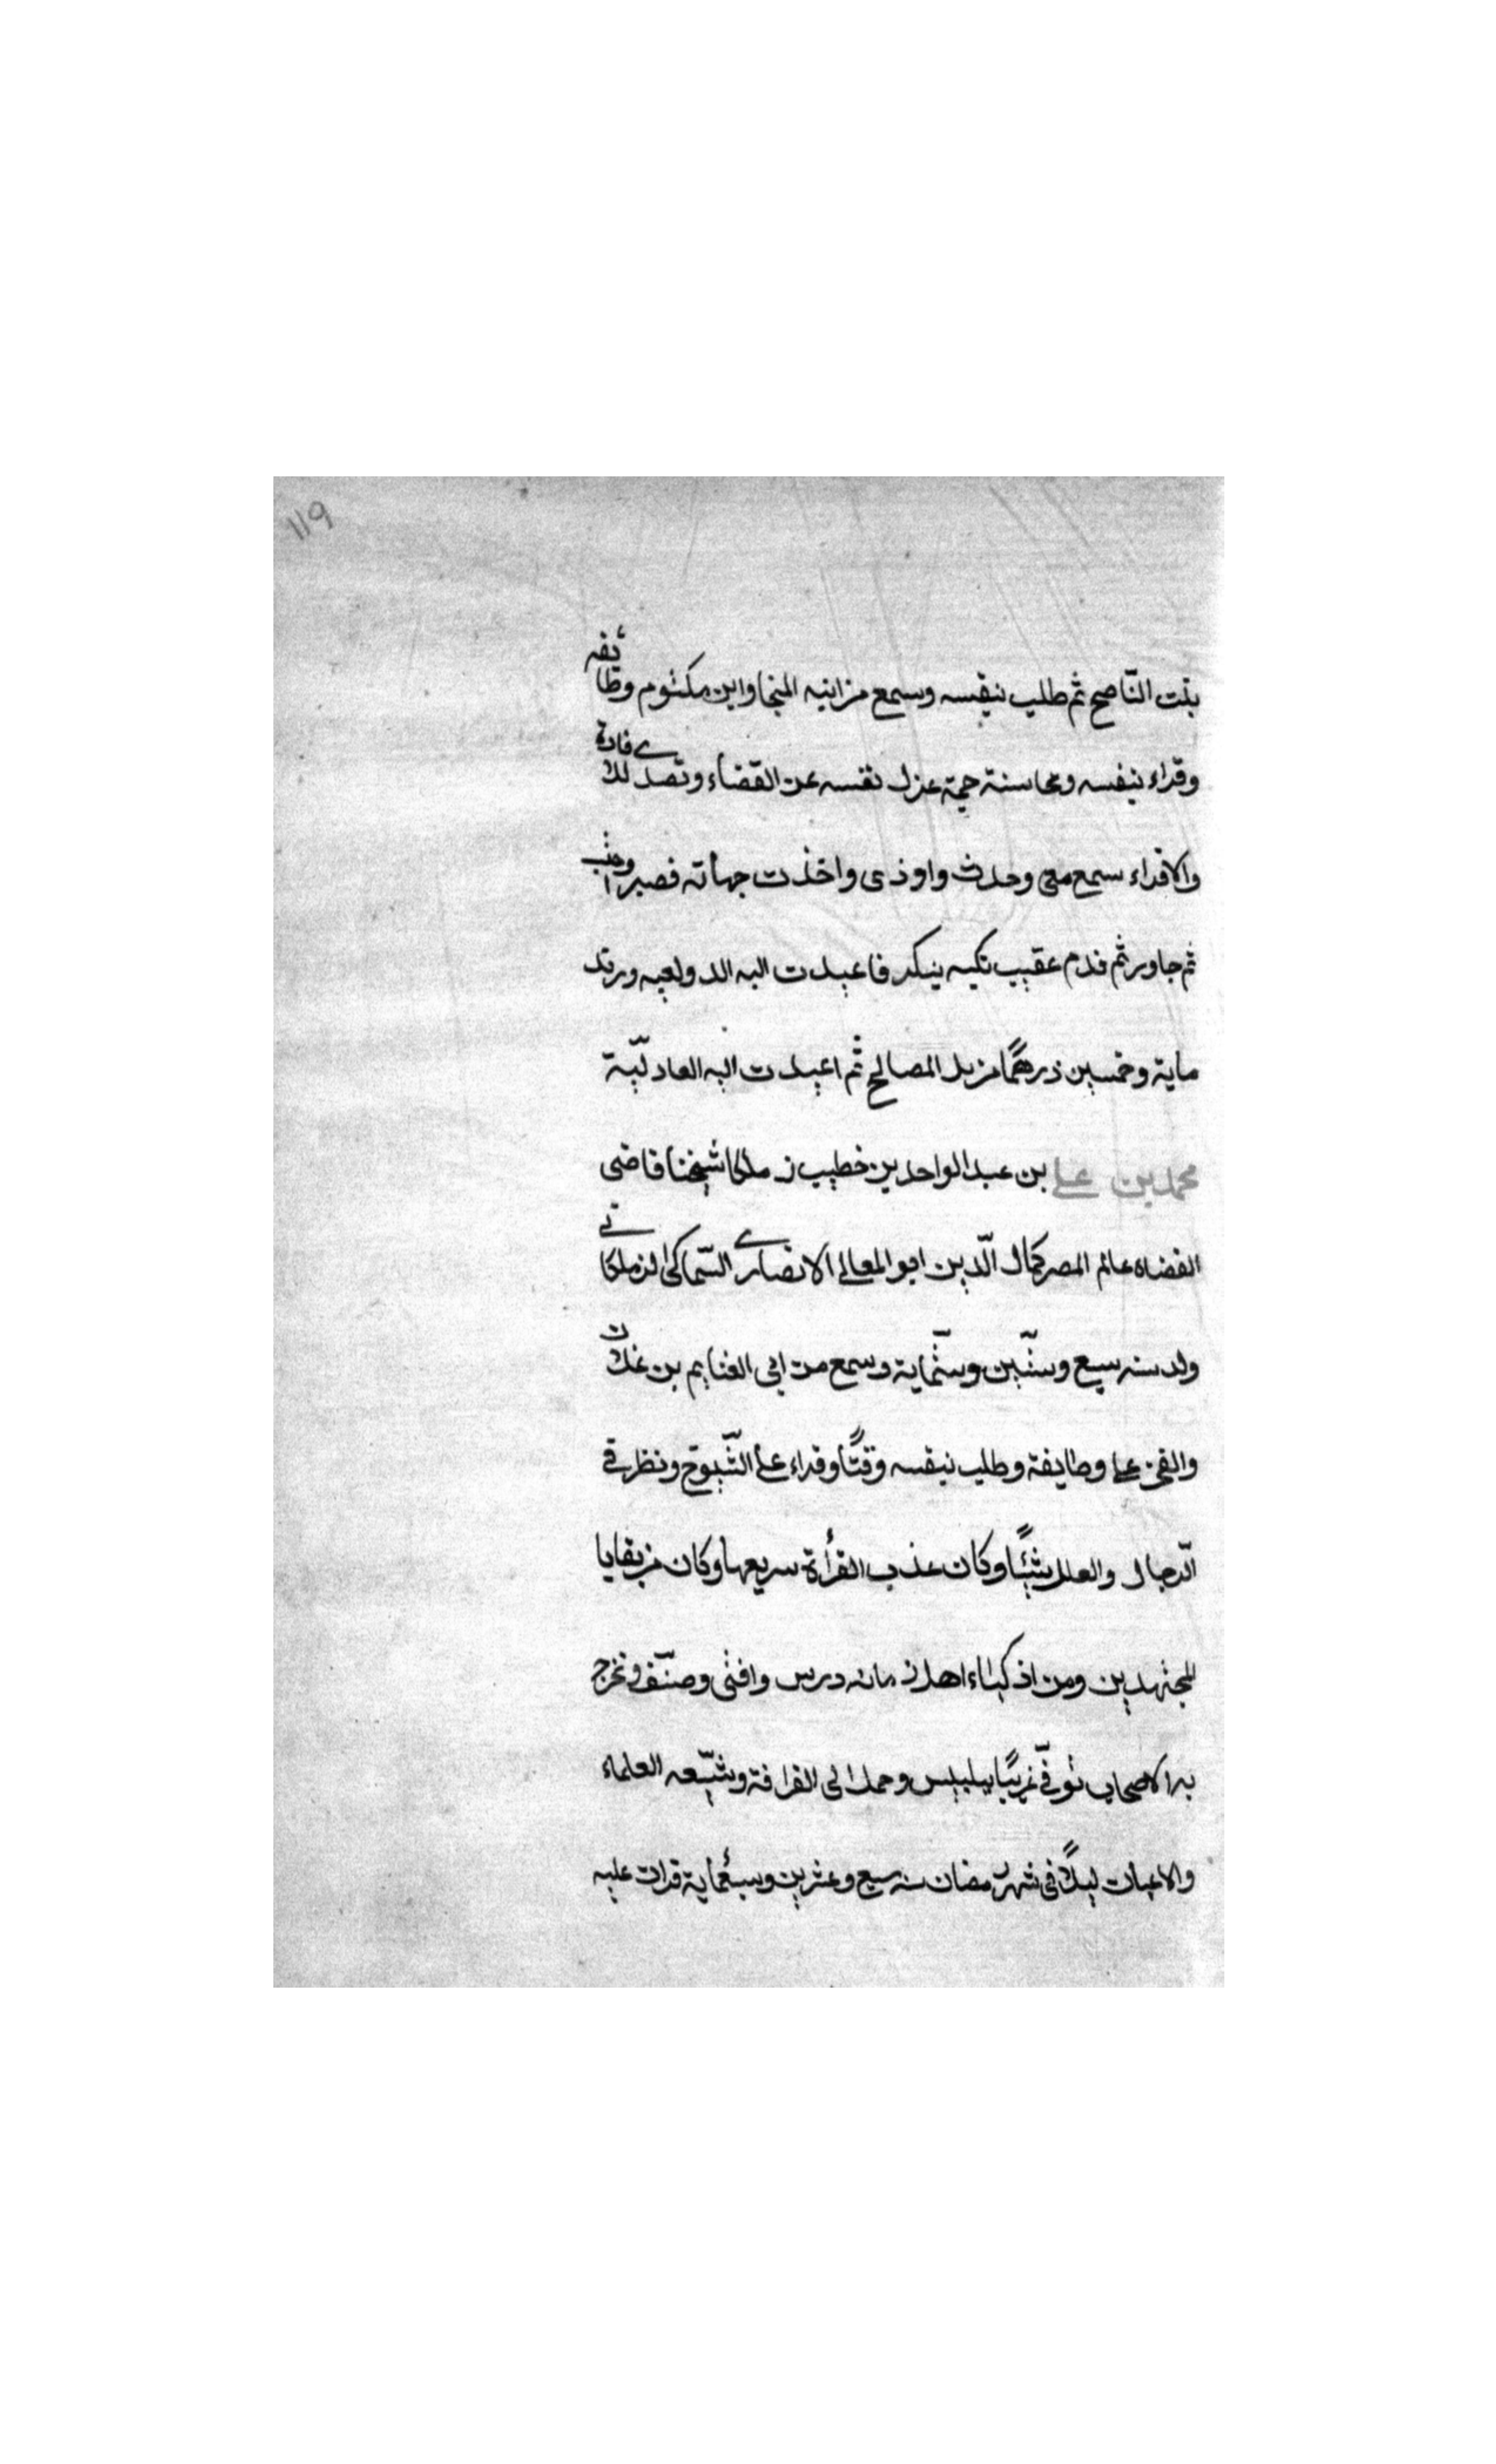 ١١٩
بنت الناصح ثم طلب بنفسه وسمع من ابنه المنجا وابن مكتوم وطائفه
وقراء بنفسه ومحاسنة جمة عزل نفسه عن القضاء وتصدى لافادة
والاقراء سمع معى وحدث واوذى واخذت جهاته فصبر واحتسب
ثم جاور ثم قدم عقيب نكبه تنكر فاعيدت اليه الدولعيه ورتد
ماية وخمسين درهمًا من بل المصالح ثم اعيدت اليه العادليّة
محمد بن علي بن عبد الواحد بن خطيب زملكا شيخنا قاضى
القضاه عالم العصر كمال الدّين ابو المعالى الانصارى السّماكى الزملكانى
ولد سنه سبع وستّين وستّماية وسمع من ابى الغنايم بن علان
والفخر على وطايفة وطلب بنفسه وقتًا وقراء على الشّيوخ ونظر فى
الرّجال والعلل شيئًا وكان عذب القرأة سريعها وكان من بقايا
المجتهدين ومن اذكياء اهل زمانه درس وافتى وصنّف وتخرج
به الاصحاب توفّى غريبًا ببلبيس وحمل الى القرافة وشيّعه العلماء
والاعيان ليلًا فى شهر رمضان سنه سبع وعشرين وسبعماية قرات عليه